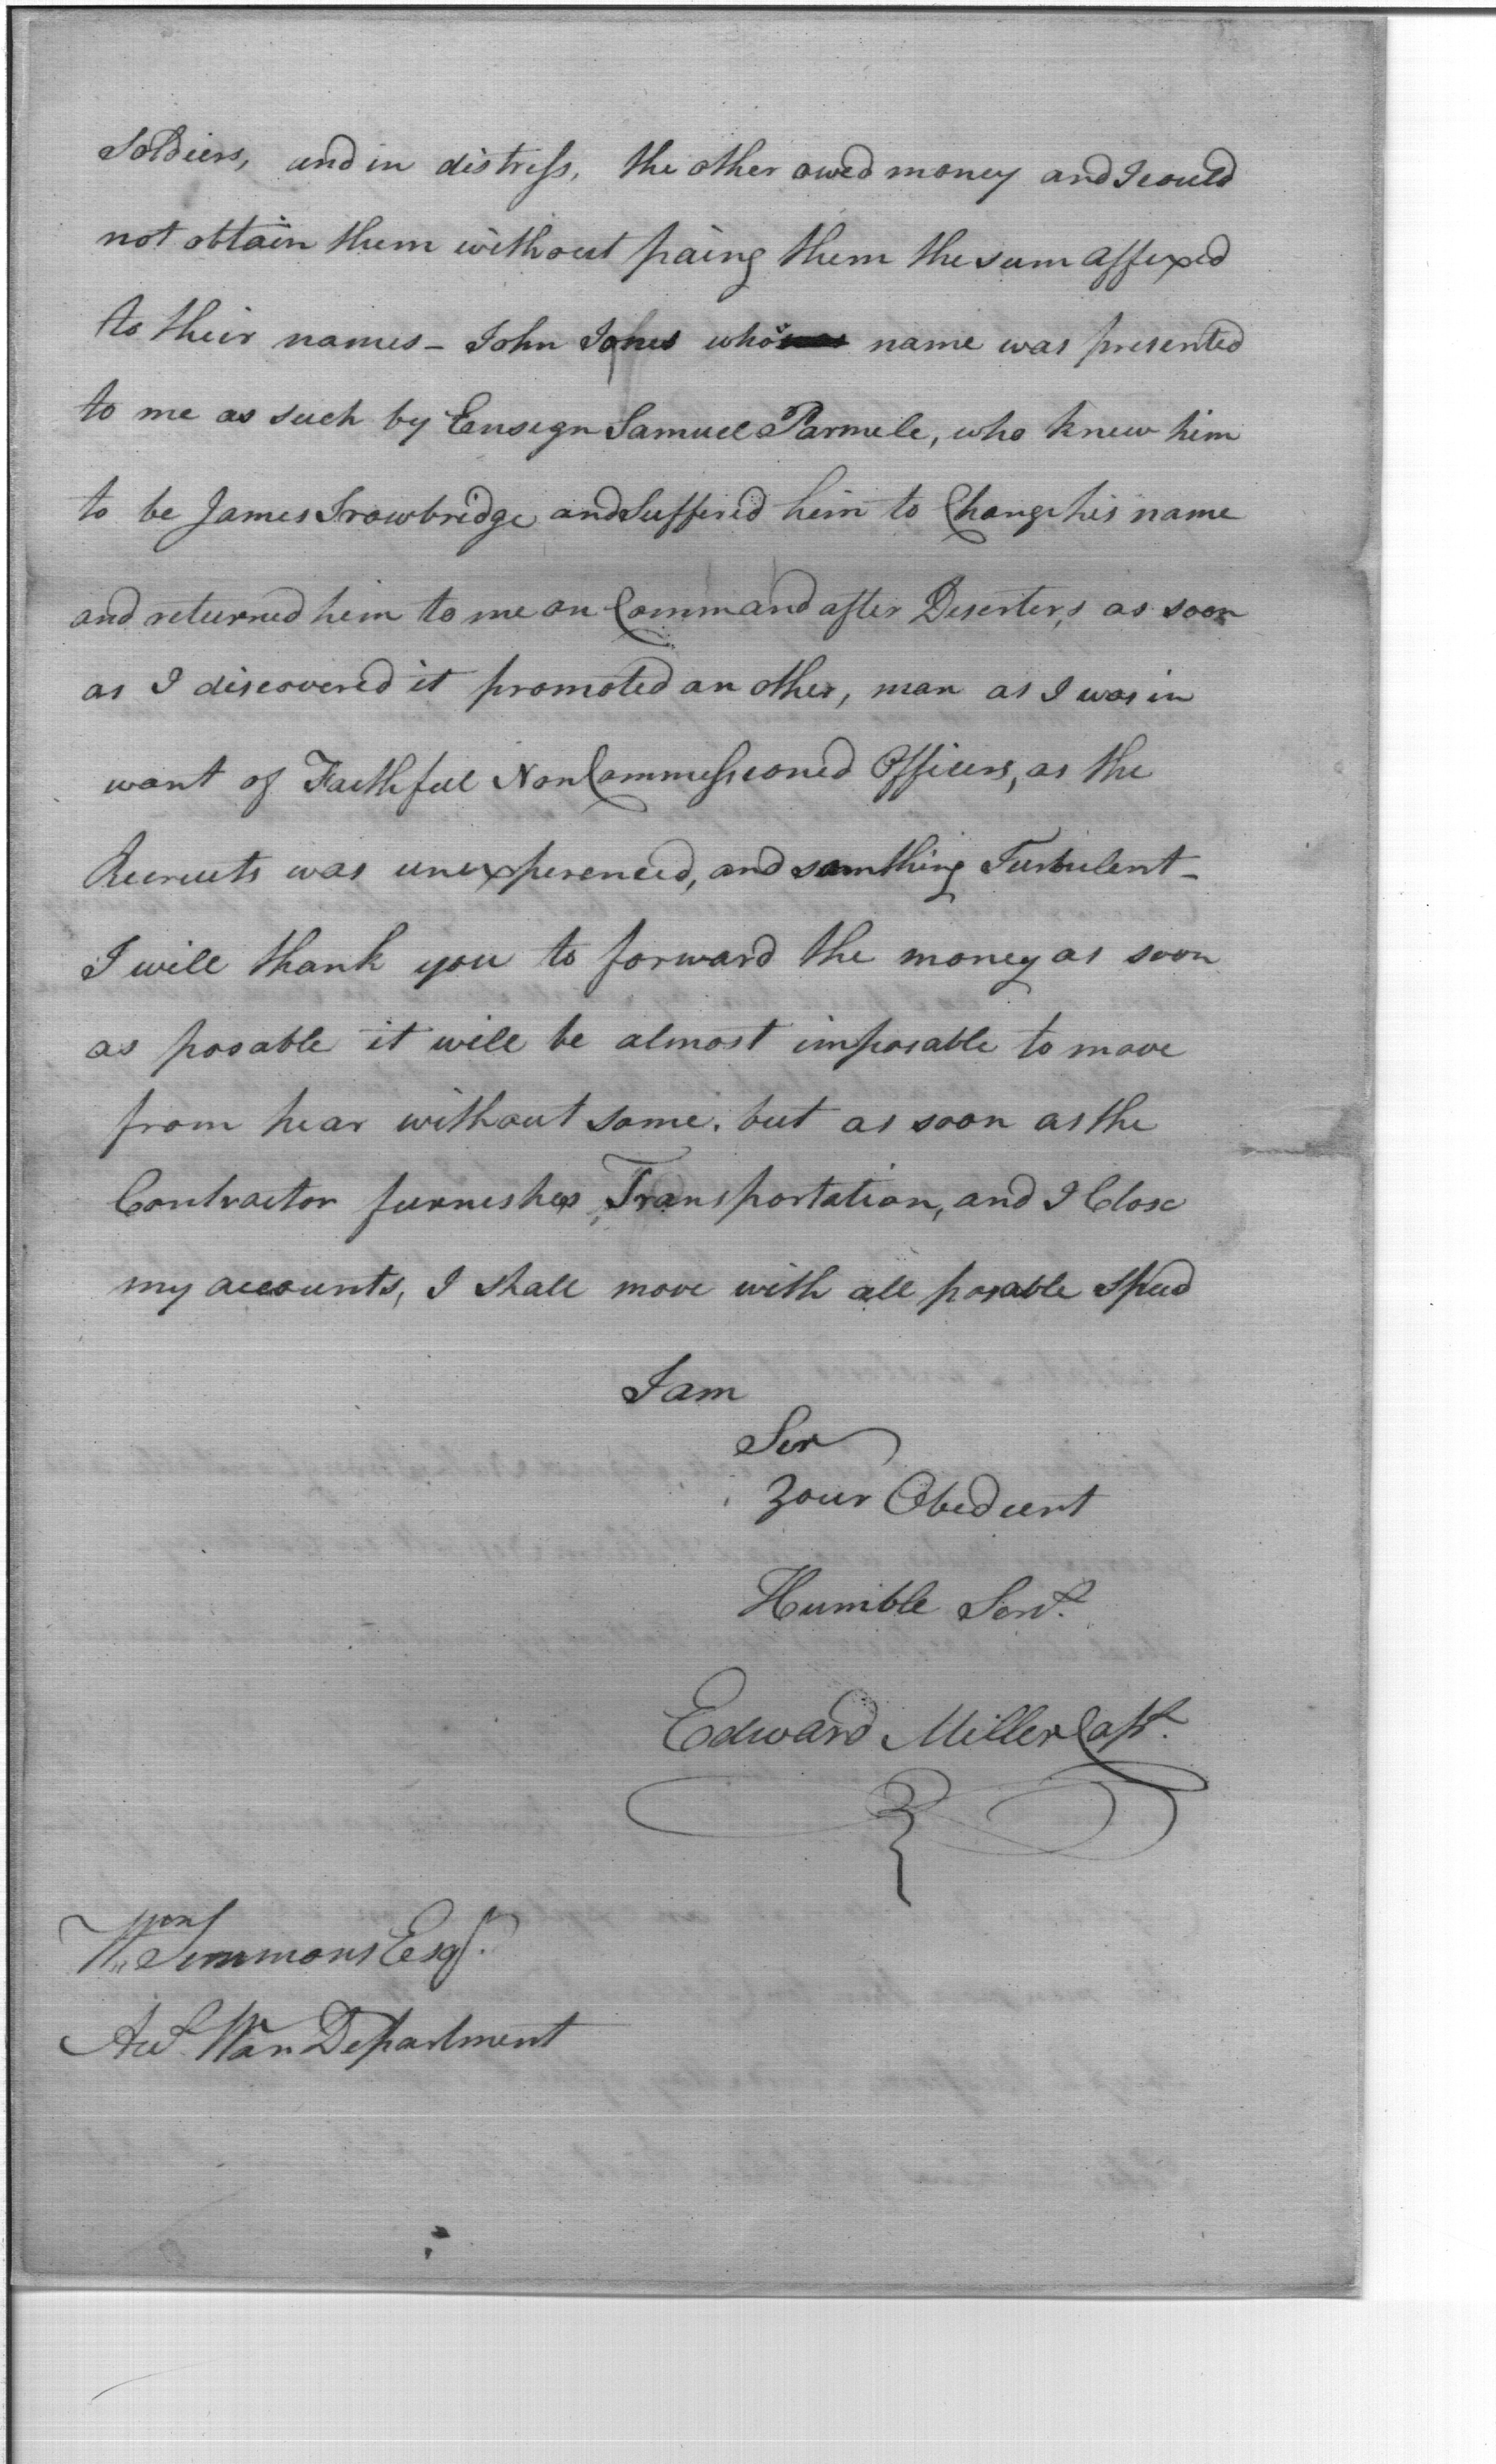 Soldiers, and in distress, the other owed money and I could
not obtain them without paing them the sum affixed
to their names – John Jones whos name was presented
to me as such by Ensign Samuel Parmele, who knew him
to be James Trowbridge and Suffered him to Change his name
and returned him to me on Command after Deserters, as soon
as I discovered it promoted an other, man as I was in
want of Faithfull Non Commissioned Officers, as the
Recruits was unexperenced, and somthing Turbulent –
I will thank you to forward the money as soon
as posable it will be almost imposable to move
from hear without some. but as soon as the
Contractor furnishes Transportation, and I Close
my accounts, I shall move with all posable Speed
I am
Sir
Your Obedient
Humble Servt.
Edward Miller Capt.
Wm Simmons Esqr.
Act. War Department